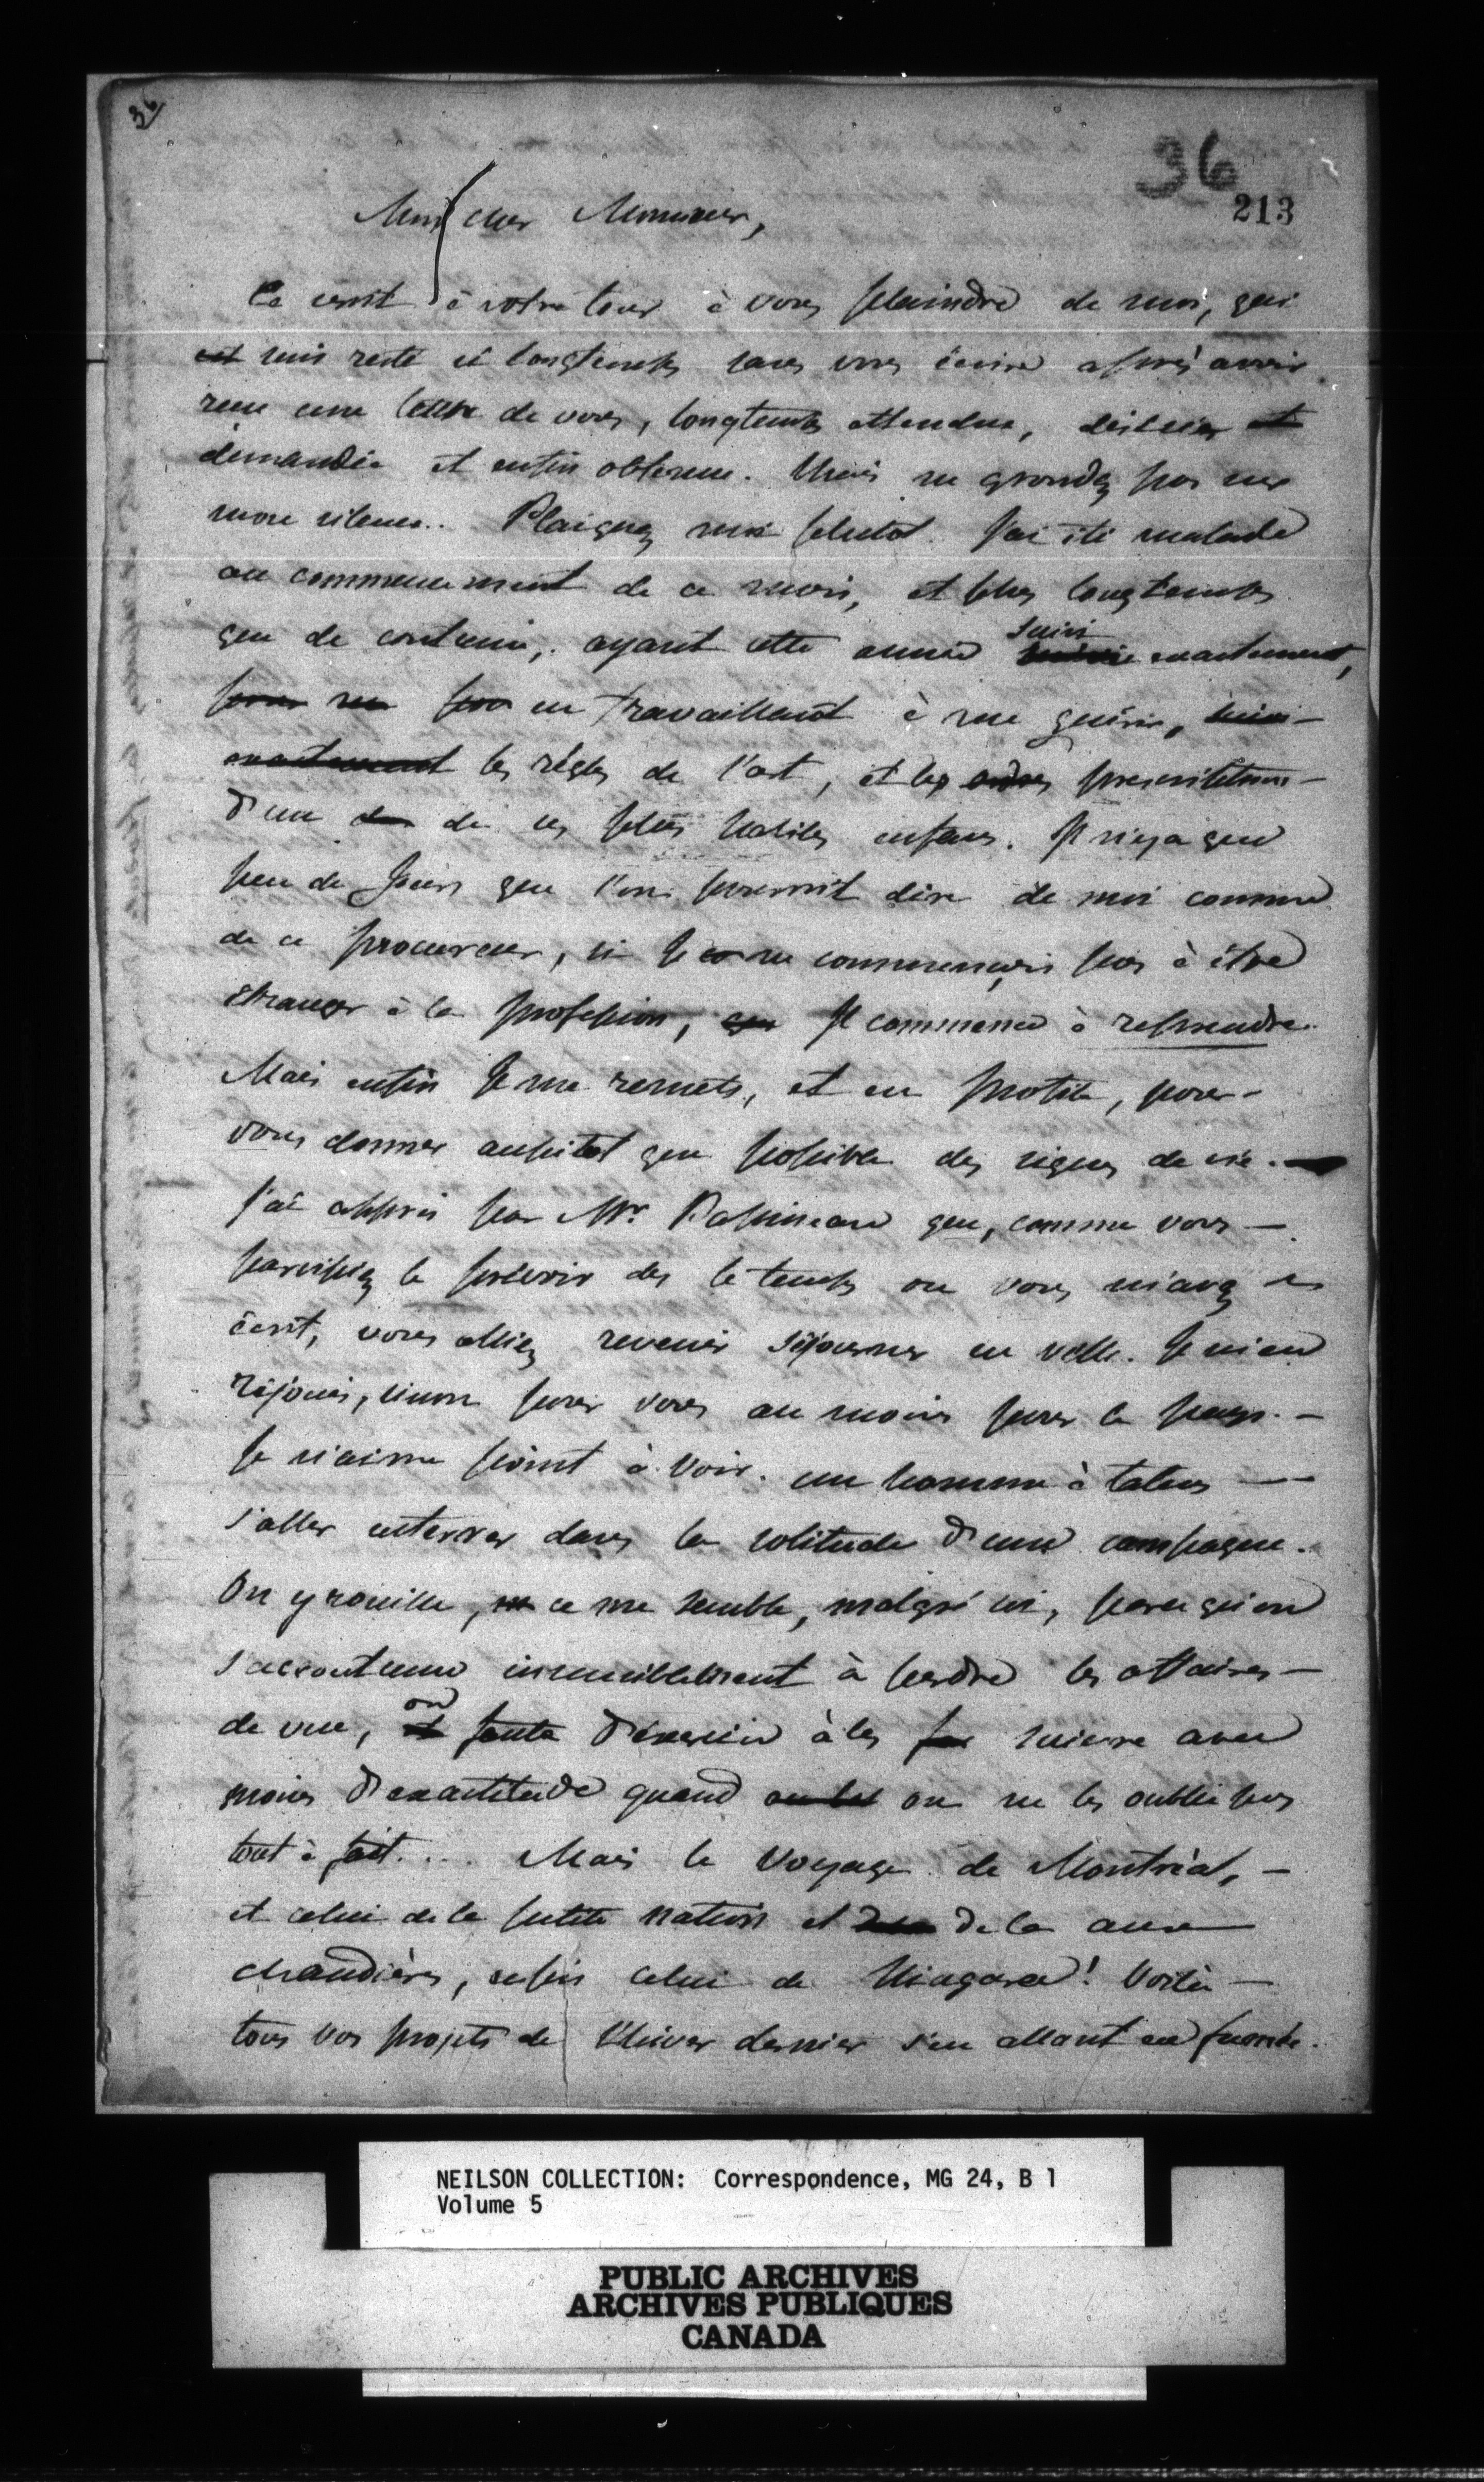 36
36
213
Mon cher Monsieur,
Ce serait à votre tour à vous plaindre de moi, qui
est suis resté si longtemps sans vous écrire après avoir
reçu une lettre de vous, longtemps attendue, désirée et
demandée et enfin obtenue. Mais ne grondez pas sur
mon silence. Plaignez moi plutot. J'ai été malade
au commencement de ce mois, et plus longtemps
que de coutume, ayant cette année suivi exactement,
pour me en travaillant à me guérir, suivi
exactement les règles de l'art, et les ordres prescriptions
d'un de ces plus habiles enfans. Il n'y a que
peu de Jours que l'on pourroit dire de moi comme
de ce procureur, si Je ne commençois pas à être
étranger à la profession, que Il commence à reprendre.
Mais enfin Je me remets, et en profite, pour
vous donner aussitot que possible des signes de vie.
J'ai appris par Mr. Papineau que, comme vous
paroissiez le prévoir des le temps ou vous m'avez
écrit, vous alliez revenir séjourner en ville. Je m'en
réjouis, sinon pour vous au moins pour le pays.
Je n'aime point à voir un homme à talens
s'aller enterrer dans la solitude d'une campagne.
On y rouille, ce me semble, malgré soi, parce qu'on
s'accoutume insensiblement à perdre les affaires
de vue, et ou faute d'exercice à les suivre avec
moins d'exactitude quand on ne les oublie pas
tout à fait.... Mais le Voyage de Montréal,
et celui de la petite nation et de la aux
chaudières, celui de Niagara! Voilà
tous vos projets de l'hiver dernier s'en allant en fumée.
NEILSON COLLECTION: Correspondence, MG 24, B 1
Volume 5
PUBLIC ARCHIVES
ARCHIVES PUBLIQUES
CANADA